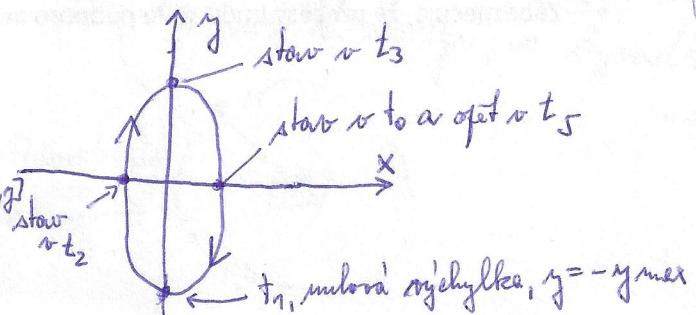 y
stav v t3
stav v t0 a opět v t5
x
y]
stav
v t2
t1, nulová výchylka, y = - y max